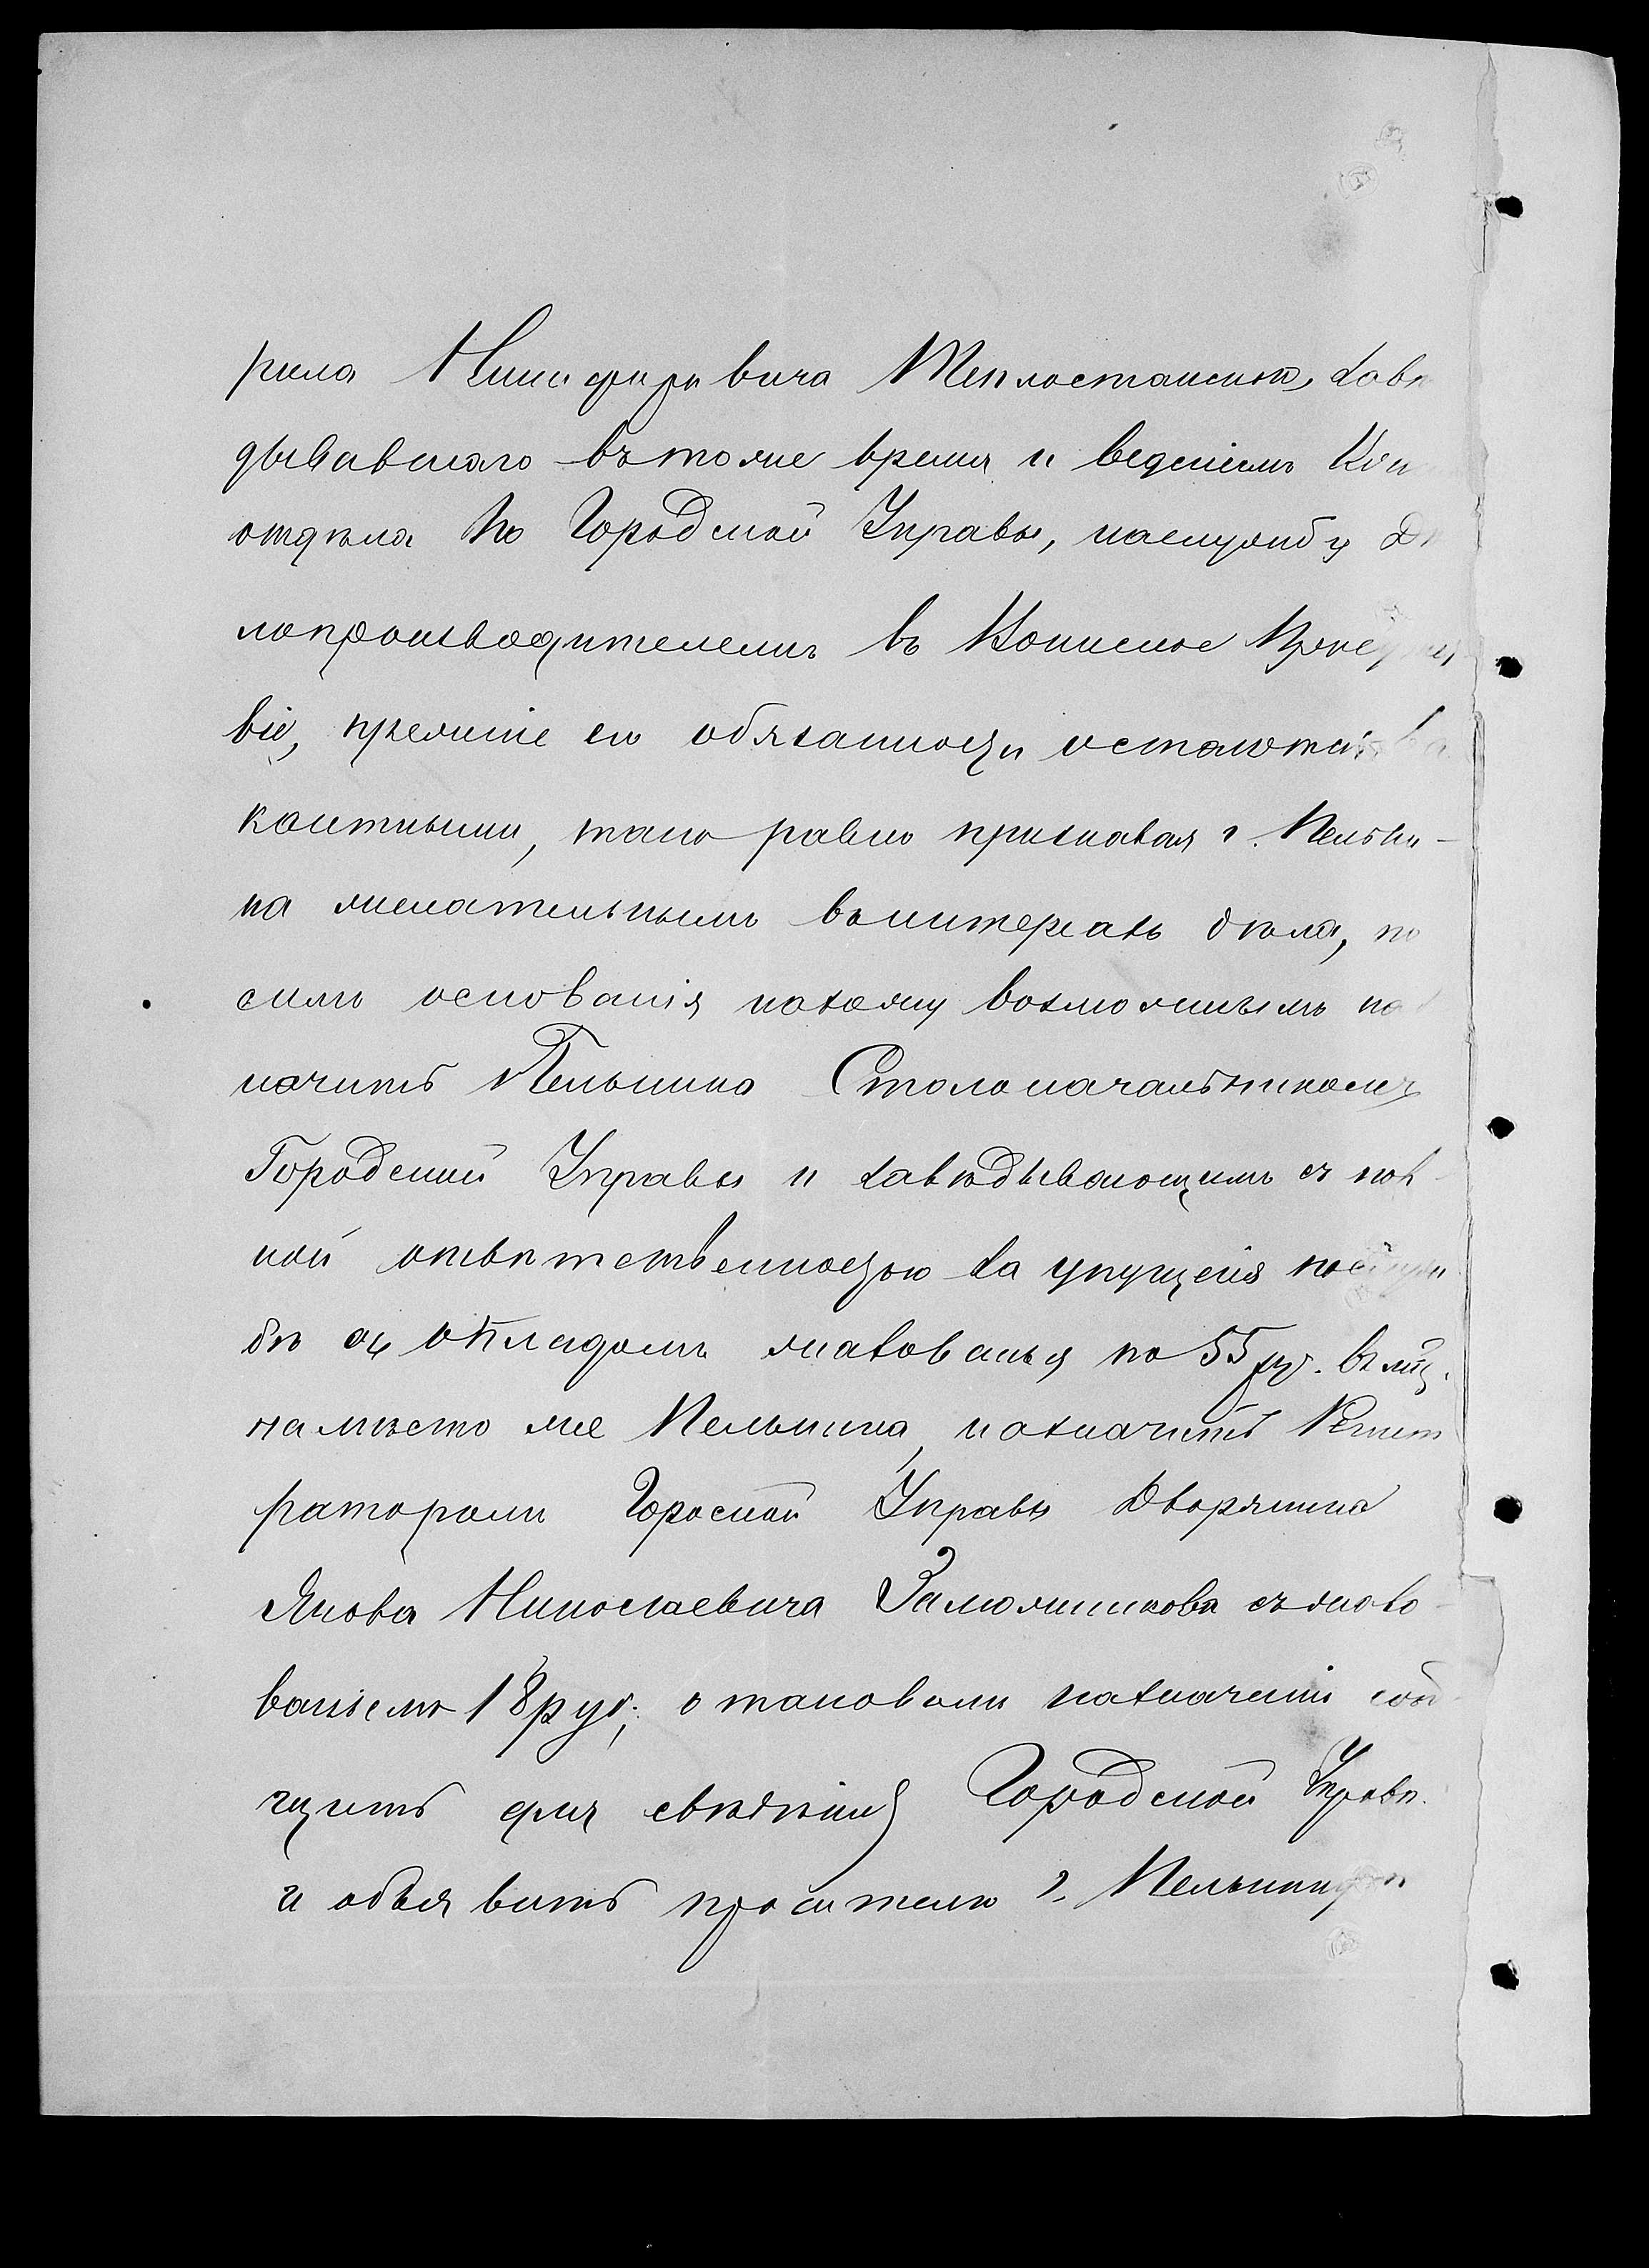 рила Никифоровича Теплостанска, завѣ
дывавшаго въ тоже время и веденіемъ Кон
отдѣла по Городской Управы, наслужбу Дѣ
лопроизводителемъ въ Конское
віе, прежніе его обязанности остаются ва
кантными, такъ равно признавая г. Пельки-
на желательнымъ въ интересахъ дѣла, по
симъ основанія нахожу возможнымъ наз
начить Пелькина Столоначальникомъ
Городской Управы и завѣдывающимъ съ пол
ной отвѣтственностью за упущенія по служ
бѣ съ окладомъ жалованья по 55 ру. въ мѣц.
на мѣсто же Пелькина, назначить Регист
раторомъ Гороской Управы Дворянина
Якова Николаевича Заложникова съ жало-
ваньемъ 18 руб; о таковомъ назначеніи сооб
щить для свѣдѣнія Городской Управѣ
и объявить просителю г. Пелькину